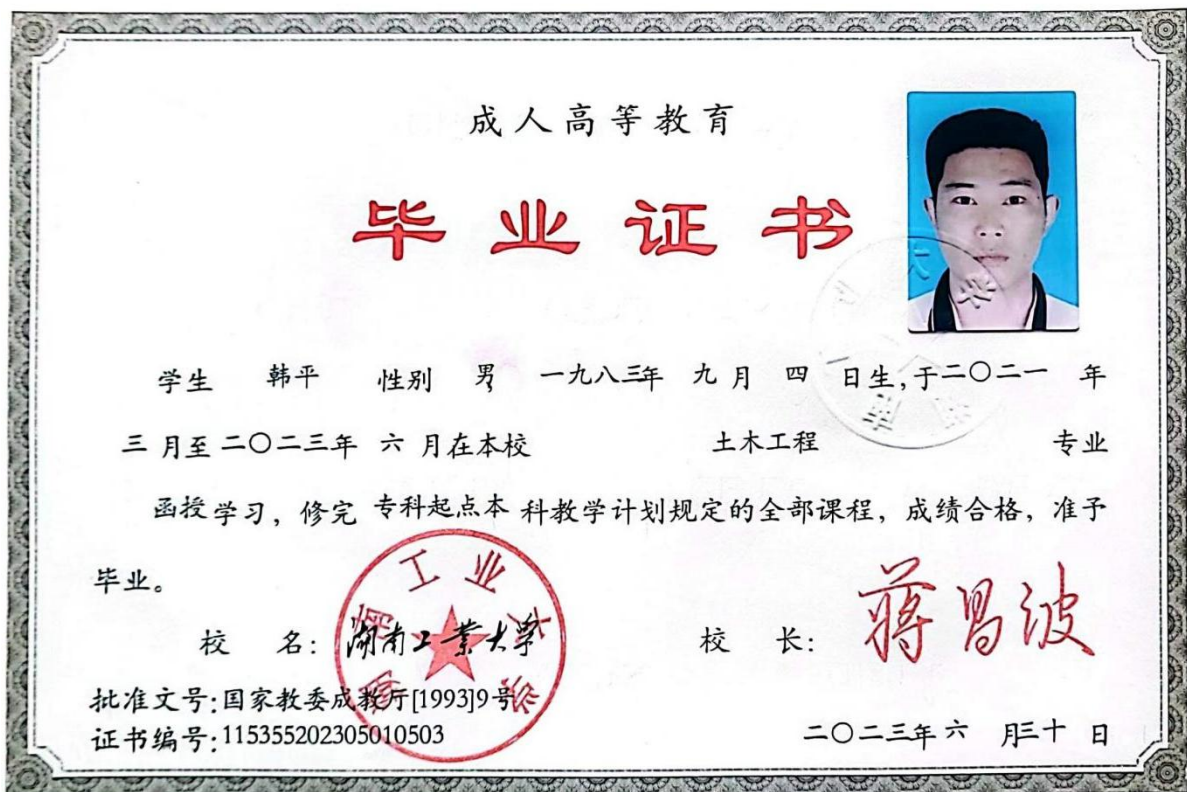 成人高等教育
毕业证书
学生 韩平 性别 男 一九八三年 九 月 四 日生，于二〇二一 年
三 月至 二〇二三年 六 月在本校 土木工程 专业
函授 学习，修完 专科起点本 科教学计划规定的全部课程，成绩合格，准予
毕业。
校 名：湖南工业大学 校 长：蒋昌波
湖南工业大学
批准文号：国家教委成教厅[1993]9号
证书编号：115355202305010503
二〇二三年 六 月三十 日